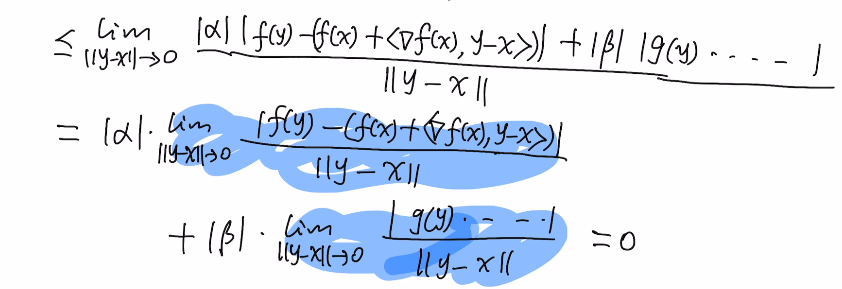 ≤ lim ||y-x||→0 |α| |f(y) - (f(x) + <∇f(x), y-x>)| + |β| |g(y) ····- |
||y - x||
= |α| · lim ||y-x||→0 |f(y) - (f(x) + <∇f(x), y-x>)|
||y - x||
+ |β| · lim ||y-x||→0 | g(y) · - - ·| = 0
||y - x||